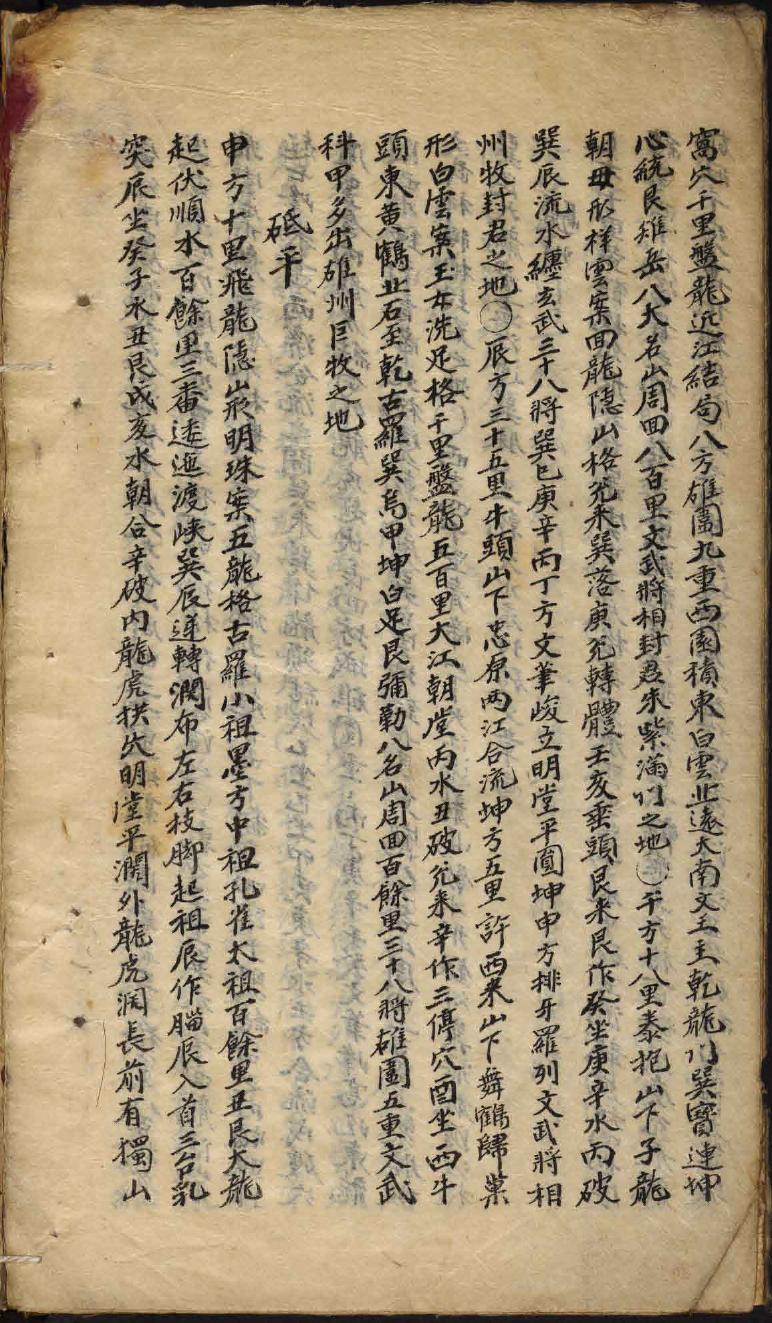 窩穴千里盤龍近江結局八方雄圍九重西園積東白雲北遠大南文玉主乾龍门巽寶連坤
心統艮雉岳八大名山周回八百里文武將相封君朱紫滿门之地〇午方十八里泰抱山下子龍
朝母形祥雲案回龍隱山格兌来巽落庚兌轉體壬亥垂頭艮来艮作癸坐庚辛水丙破
巽辰流水纏玄武三十八將巽巳庚辛丙丁方文筆峻立明堂平圓坤申方排牙羅列文武將相
州牧封君之地〇辰方三十五里牛頭山下忠原两江合流坤方五里許西来山下舞鶴歸巢
形白雲案玉女洗足格千里盤龍五百里大江朝堂丙水丑破兌来辛作三停穴酉坐西牛
頭東黄鶴北石至乾古羅巽烏甲坤白足艮彌勒八名山周回百餘里三十八將雄圍五重文武
科甲多出雄州巨牧之地
砥平
申方十里飛龍隱山形明珠案五龍格古羅小祖墨方中祖孔雀太祖百餘里丑艮大龍
起伏順水百餘里三番逶迤渡峡巽辰逆轉濶布左右枝脚起祖辰作腦辰入首三台乳
突辰坐癸子水丑艮戌亥水朝合辛破内龍虎拱穴明堂平濶外龍虎濶長前有獨山